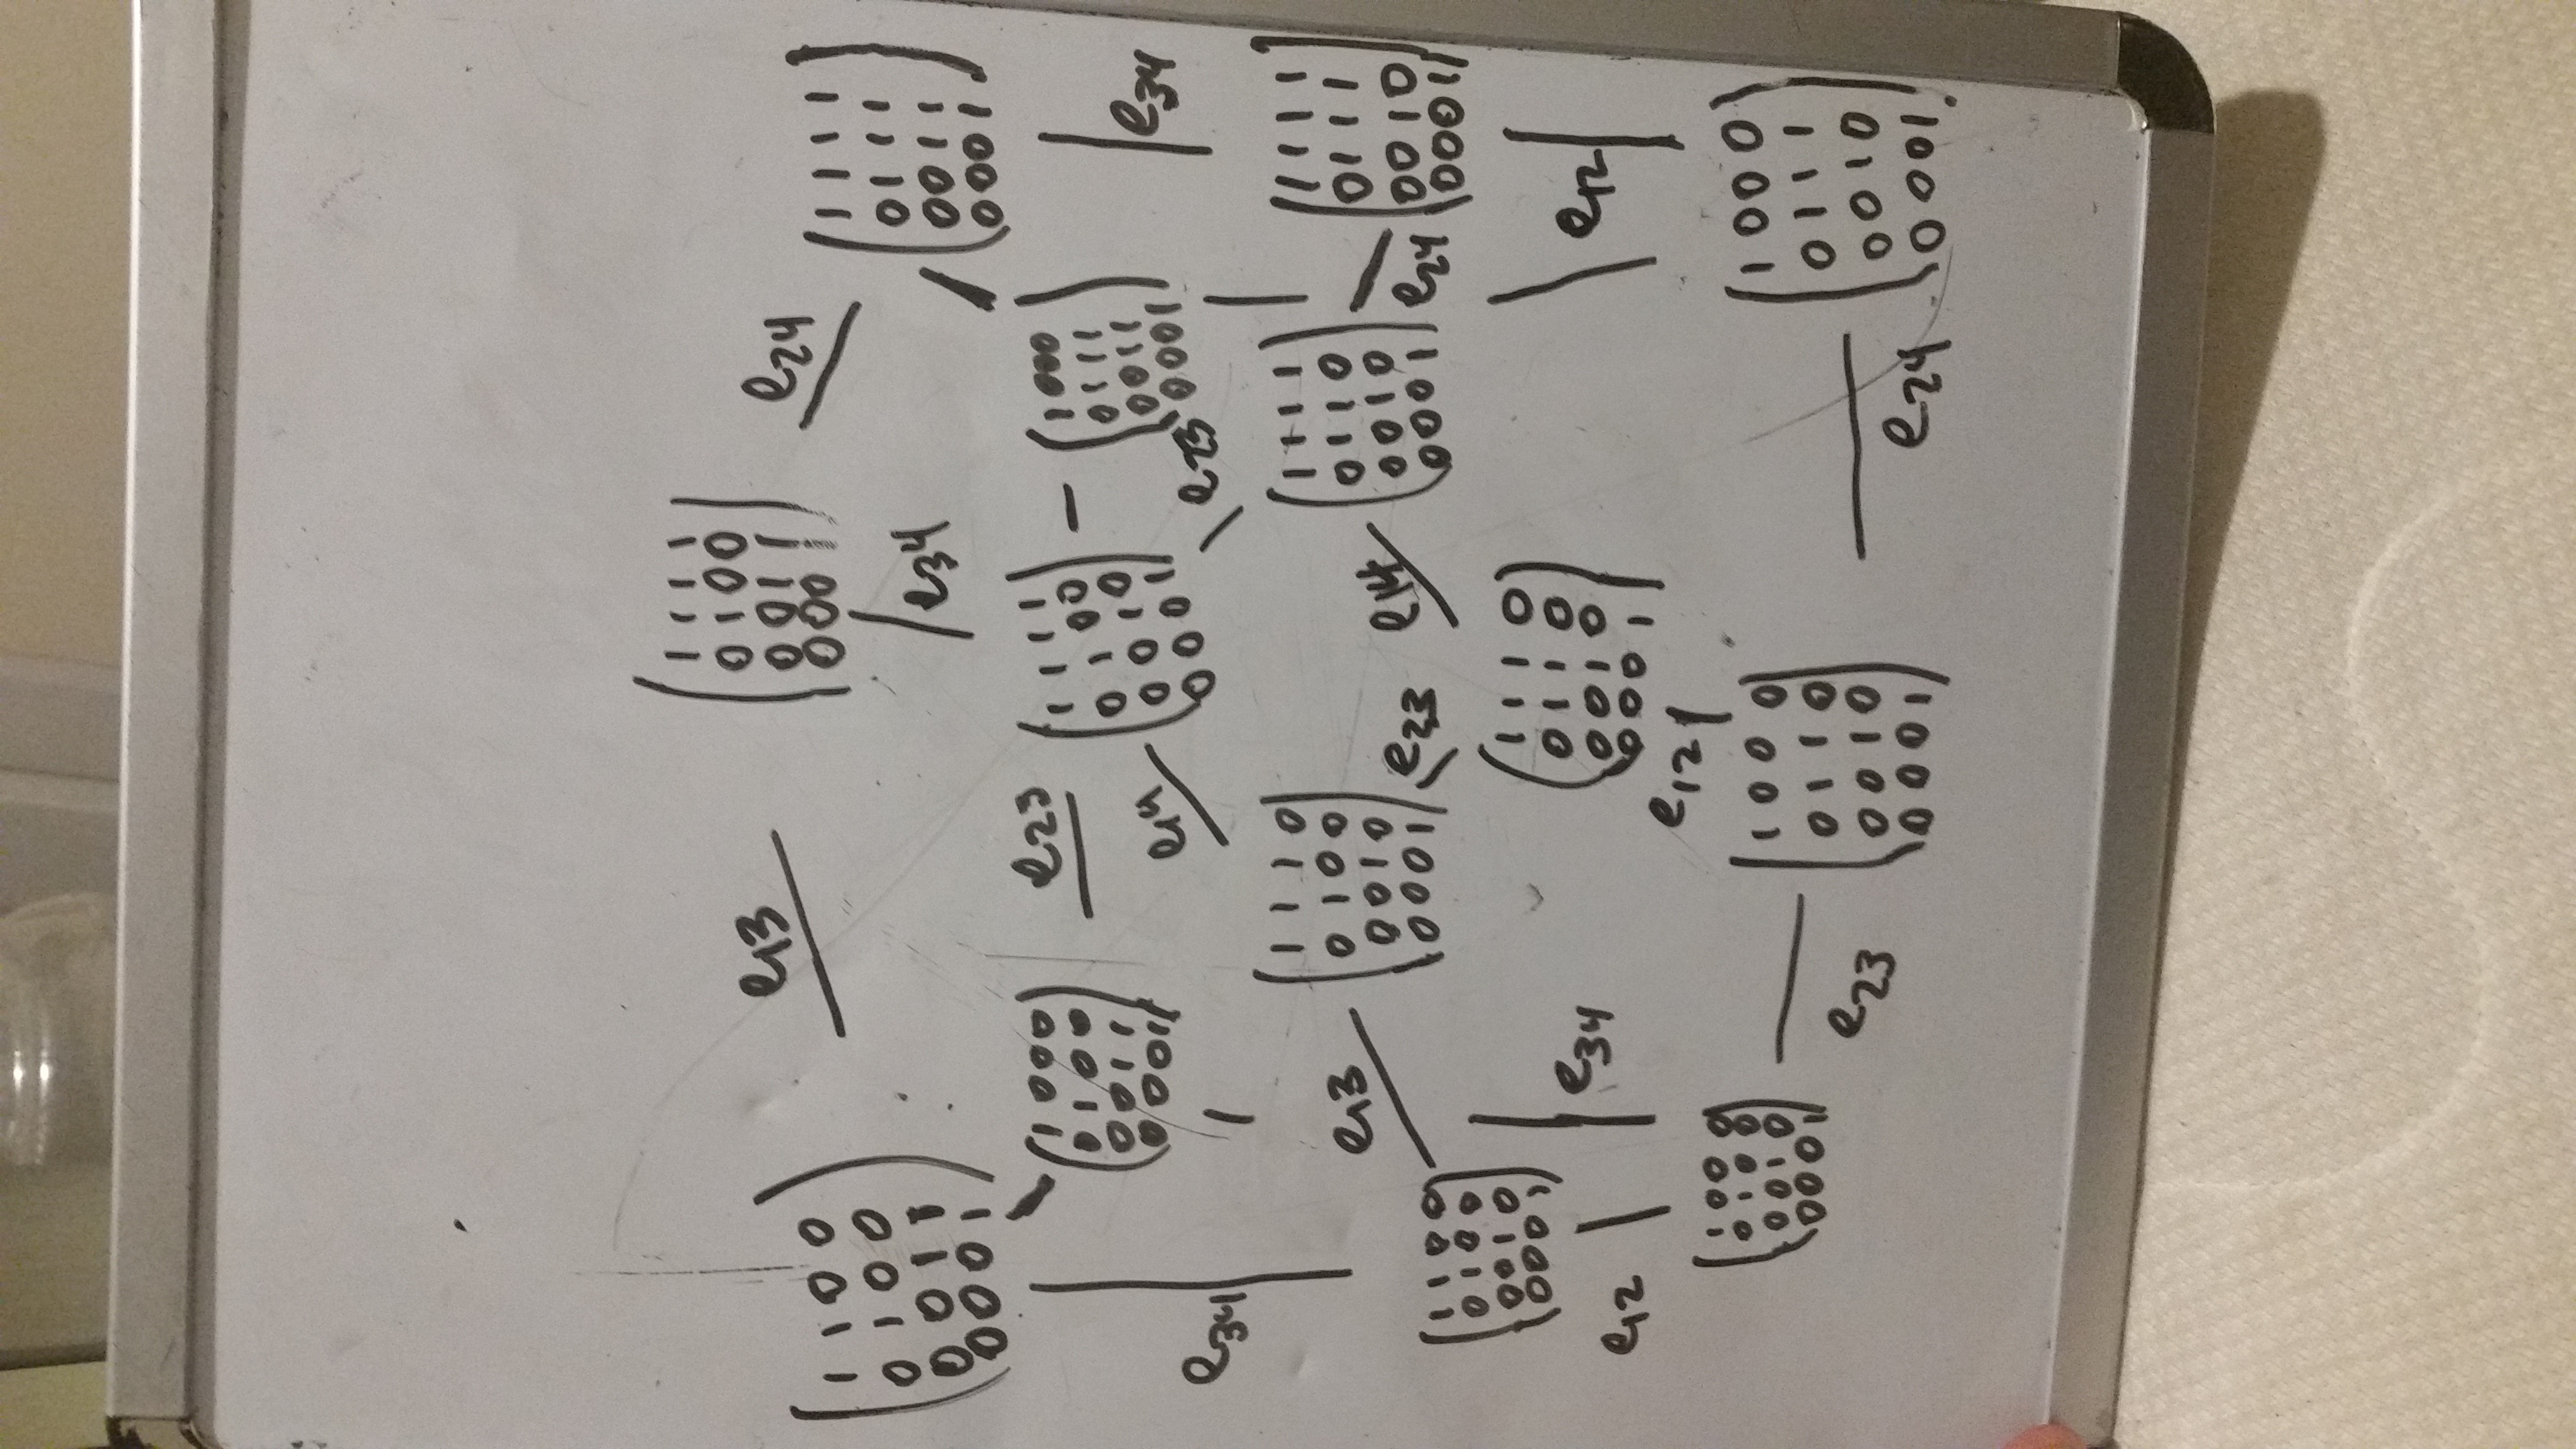 e13
1 1 1 1
0 1 0 0
0 0 1 1
0 0 0 1
e24
1 1 0 0
0 1 0 0
0 0 1 1
0 0 0 1
e34
1 1 1 1
0 1 1 1
0 0 1 1
0 0 0 1
1 0 0 0
0 1 0 0
0 0 1 1
0 0 0 1
e23
1 1 1 1
0 1 0 0
0 0 1 0
0 0 0 1
1 0 0 0
0 1 1 1
0 0 1 1
0 0 0 1
e34
e14
e23
e34
e13
1 1 1 0
0 1 0 0
0 0 1 0
0 0 0 1
e23
e14
1 1 1 1
0 1 1 0
0 0 1 0
0 0 0 1
e24
1 1 1 1
0 1 1 1
0 0 1 0
0 0 0 1
1 1 0 0
0 1 0 0
0 0 1 0
0 0 0 1
e12
e34
1 1 1 0
0 1 1 0
0 0 1 0
0 0 0 1
e12
e12
1 0 0 0
0 1 0 0
0 0 1 0
0 0 0 1
e23
1 0 0 0
0 1 1 0
0 0 1 0
0 0 0 1
e24
1 0 0 0
0 1 1 1
0 0 1 0
0 0 0 1